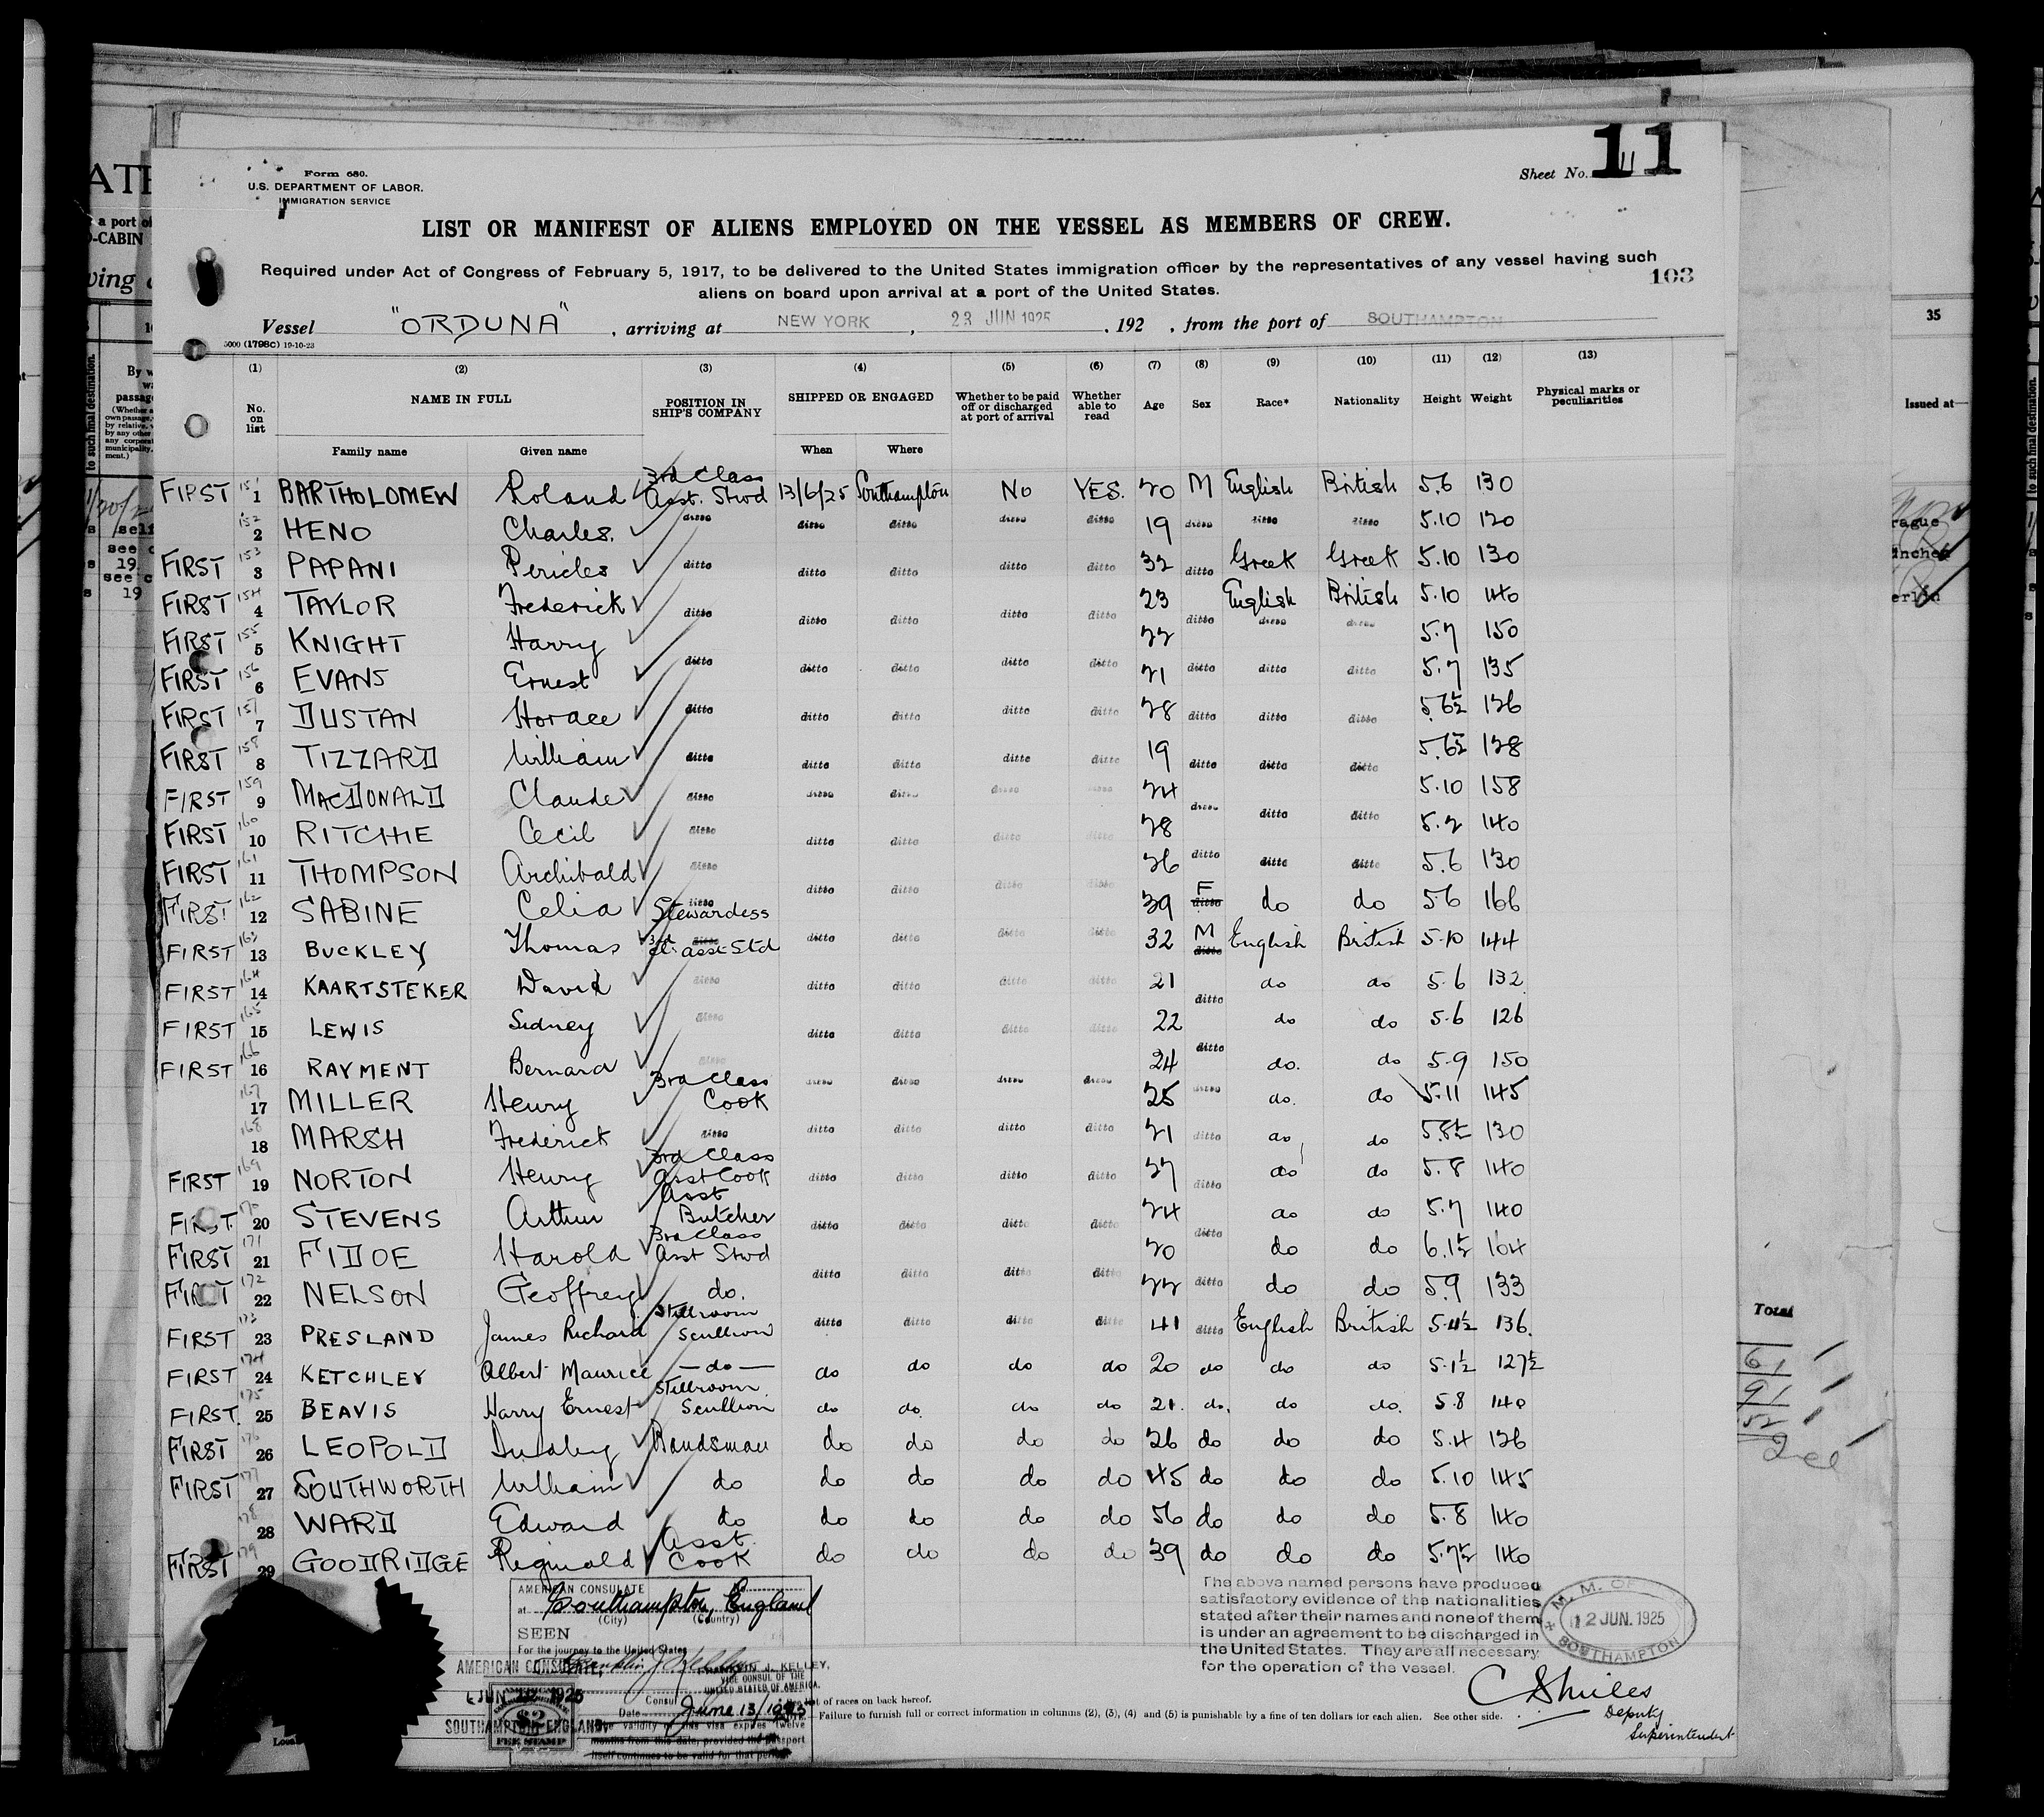 Form 680.
U.S. DEPARTMENT OF LABOR.
IMMIGRATION SERVICE
Sheet No. 11
11
LIST OR MANIFEST OF ALIENS EMPLOYED ON THE VESSEL AS MEMBERS OF CREW.
Required under Act of Congress of February 5, 1917, to be delivered to the United States immigration officer by the representatives of any vessel having such
aliens on board upon arrival at a port of the United States.
103
Vessel "ORDUNA", arriving at NEW YORK, 23 JUN 1925, 192 , from the port of SOUTHAMPTON
5000 (1798C) 19-10-23
(1) (2) (3) (4) (5) (6) (7) (8) (9) (10) (11) (12) (13)
No. on list NAME IN FULL POSITION IN SHIP'S COMPANY SHIPPED OR ENGAGED Whether to be paid off or discharged at port of arrival Whether able to read Age Sex Race* Nationality Height Weight Physical marks or peculiarities
Family name Given name When Where
FIRST 151 1 BARTHOLOMEW Roland 3rd Class Asst. Stwd 13/6/25 Southampton No YES. 20 M English British 5.6 130
152 2 HENO Charles. ditto ditto ditto ditto ditto 19 ditto ditto ditto 5.10 120
FIRST 153 3 PAPANI Pericles ditto ditto ditto ditto ditto 32 ditto Greek Greek 5.10 130
FIRST 154 4 TAYLOR Frederick ditto ditto ditto ditto ditto 23 ditto English British 5.10 140
FIRST 155 5 KNIGHT Harry 22 ditto ditto 5.7 150
FIRST 156 6 EVANS Ernest ditto ditto ditto ditto ditto 21 ditto ditto ditto 5.7 135
FIRST 157 7 DUSTAN Horace ditto ditto ditto ditto ditto 28 ditto ditto ditto 5.6½ 126
FIRST 158 8 TIZZARD William ditto ditto ditto ditto ditto 19 ditto ditto ditto 5.6½ 128
FIRST 159 9 MACDONALD Claude ditto ditto ditto ditto 24 ditto 5.10 158
FIRST 160 10 RITCHIE Cecil ditto ditto ditto ditto ditto 28 ditto ditto 5.2 140
FIRST 161 11 THOMPSON Archibald ditto ditto ditto ditto ditto 26 ditto ditto ditto 5.6 130
FIRST 162 12 SABINE Celia ditto Stewardess 39 F ditto do do 5.6 166
FIRST 163 13 BUCKLEY Thomas 3rd Cl. asst Std ditto ditto ditto ditto 32 M ditto English British 5.10 144
FIRST 164 14 KAARTSTEKER David ditto ditto ditto ditto ditto 21 ditto do do 5.6 132
FIRST 165 15 LEWIS Sidney ditto ditto ditto ditto ditto 22 ditto do do 5.6 126
FIRST 166 16 RAYMENT Bernard ditto 24 do. do 5.9 150
167 17 MILLER Henry 3rd Class Cook ditto ditto ditto ditto 25 ditto do. do 5.11 145
168 18 MARSH Frederick ditto ditto ditto ditto ditto 21 ditto do do 5.8½ 130
FIRST 169 19 NORTON Henry 3rd Class Asst Cook ditto ditto ditto ditto 27 ditto do do 5.8 140
FIRST 170 20 STEVENS Arthur Asst Butcher ditto ditto ditto ditto 24 ditto do do 5.7 140
FIRST 171 21 FIDOE Harold 3rd Class Asst Stwd 20 do do 6.1½ 164
FIRST 172 22 NELSON Geoffrey do. ditto ditto ditto ditto 22 ditto do do 5.9 133
FIRST 173 23 PRESLAND James Richard Stillroom Scullion ditto ditto ditto ditto 41 ditto English British 5.4½ 136.
FIRST 174 24 KETCHLEY Albert Maurice — do — do do do do 20 do do do 5.1½ 127½
FIRST. 175 25 BEAVIS Harry Ernest Stillroom Scullion do do. do do 21. do. do do. 5.8 140
FIRST 176 26 LEOPOLD Bandsman do do do do 26 do do do 5.4 126
FIRST 177 27 SOUTHWORTH William do do do do do 45 do do do 5.10 145
178 28 WARD Edward do do do do do 56 do do do 5.8 140
FIRST 179 29 GOODRIDGE Reginald Asst. Cook do do do do 39 do do do 5.7½ 140
AMERICAN CONSULATE
at Southampton, England
(City) (Country)
SEEN
For the journey to the United States
FRANKLIN J. KELLEY,
VICE CONSUL OF THE
UNITED STATES OF AMERICA.
Consul
Date June 13/1925
The validity of this visa expires twelve
months from this date, provided the passport
itself continues to be valid for that period
AMERICAN CONSULATE,
JUN 1925
SOUTHAMPTON, ENGLAND
$2
FEE STAMP
The above named persons have produced
satisfactory evidence of the nationalities
stated after their names and none of them
is under an agreement to be discharged in
the United States. They are all necessary
for the operation of the vessel.
M. M. OF
12 JUN. 1925
SOUTHAMPTON
Deputy
Superintendent
list of races on back hereof.
Failure to furnish full or correct information in columns (2), (3), (4) and (5) is punishable by a fine of ten dollars for each alien. See other side.
35
Issued at—
Total
61
91
52